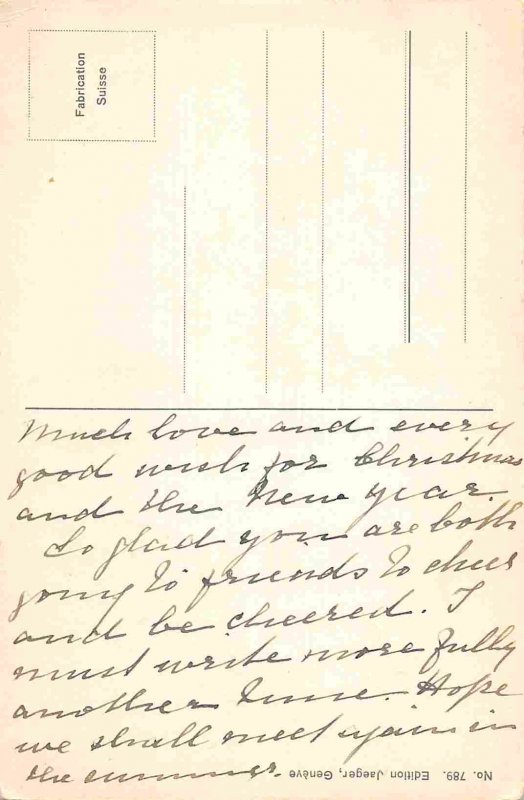 Fabrication
Suisse
Much love and every
good wish for Christmas
and the New Year.
So glad you are both
going to friends to cheer
and be cheered. I
must write more fully
another time. Hope
we shall meet again in
the summer.
No. 789. Edition Jaeger, Genève